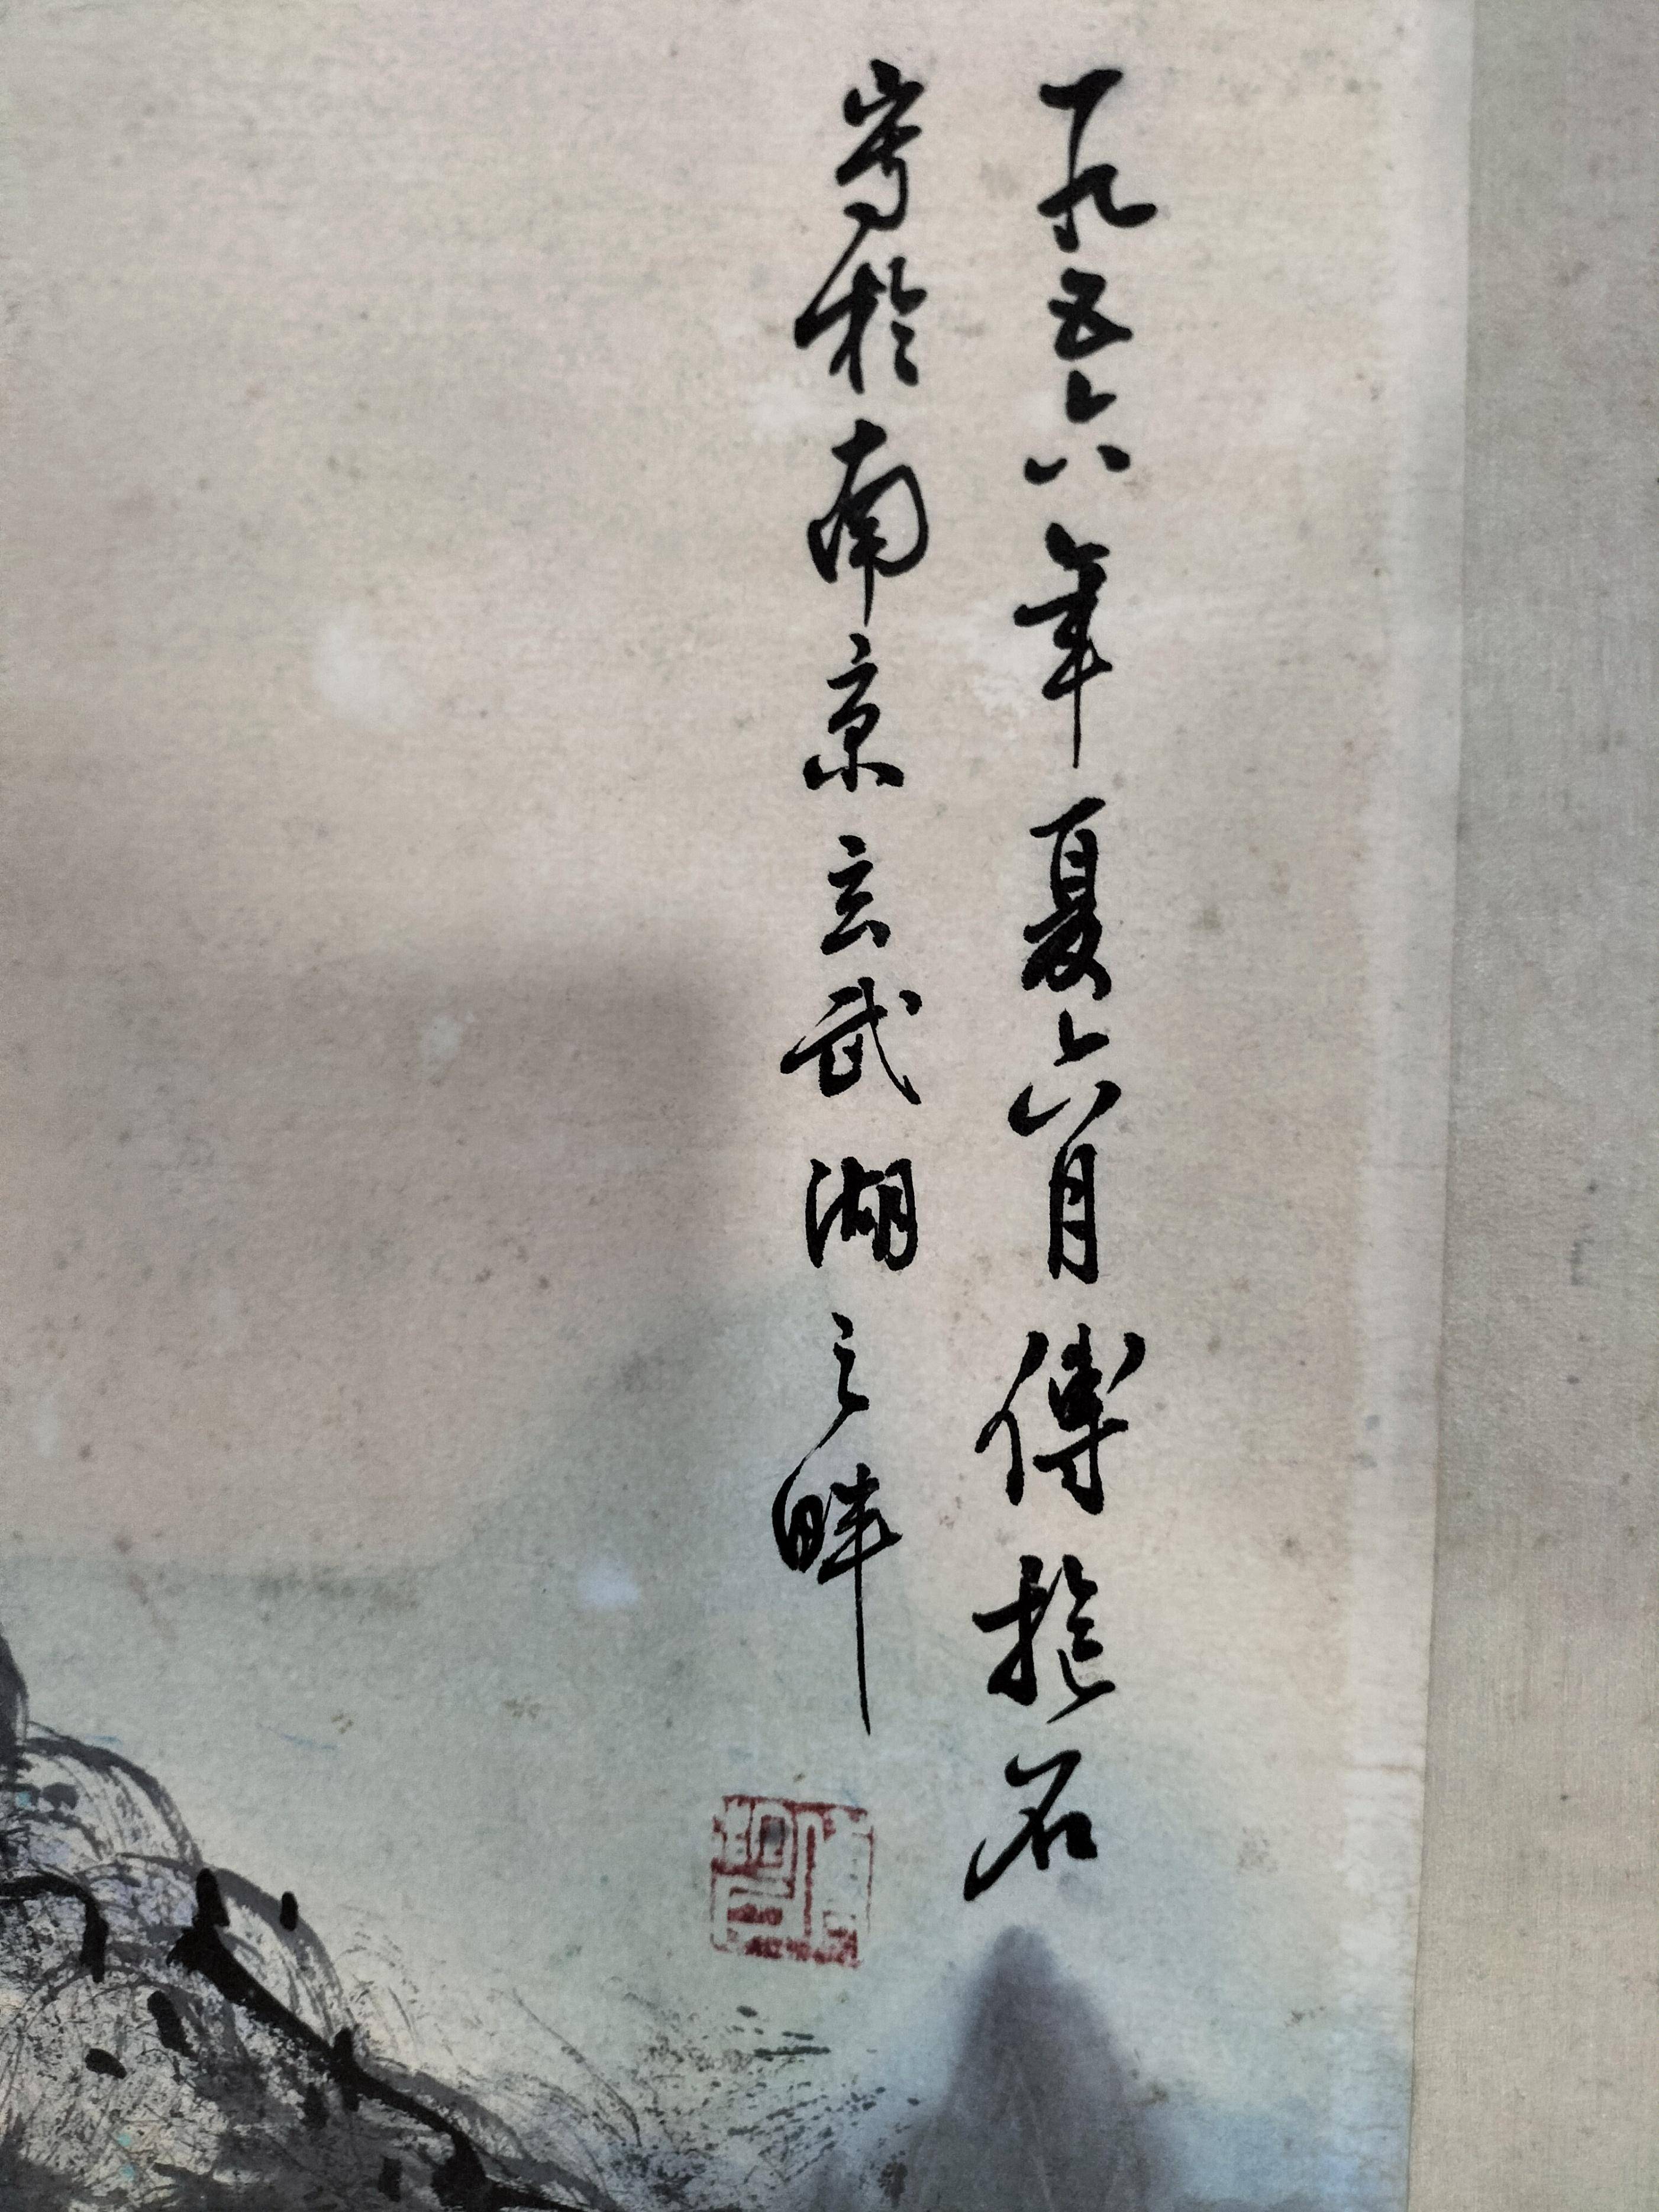 一九五六年夏六月傅抱石
写於南京玄武湖之畔